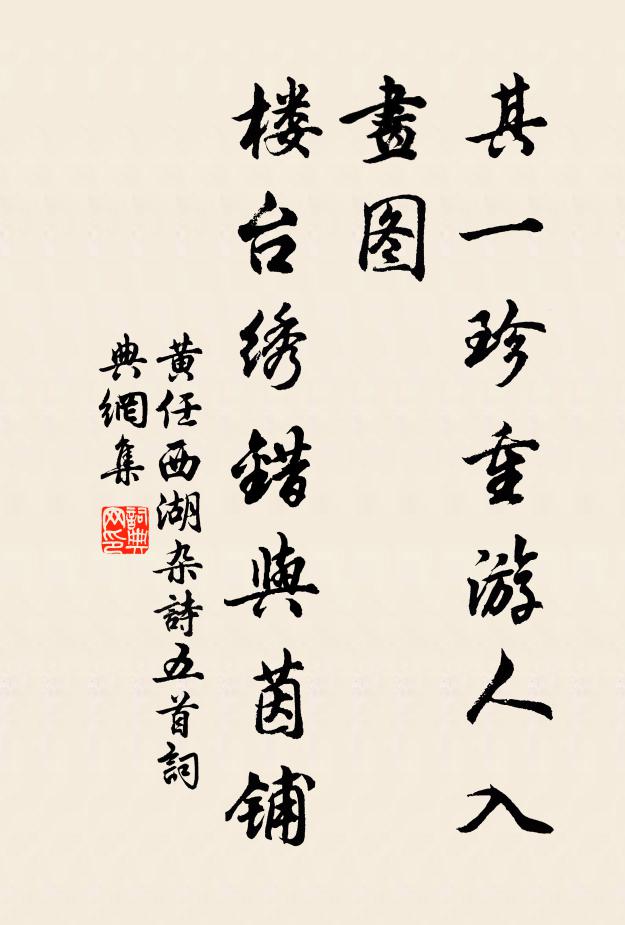 其一珍重游人入
畫图
楼台绣錯與茵铺
黄任西湖杂詩五首詞
典網集
詞典
网印